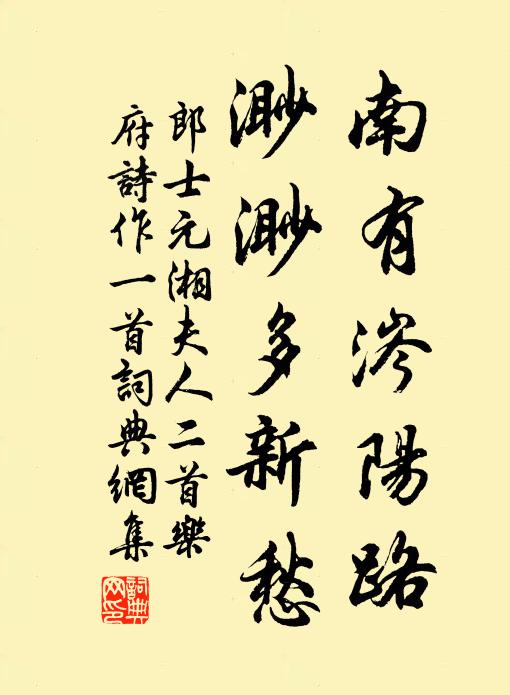 南有涔陽路
渺渺多新愁
郎士元湘夫人二首樂
府詩作一首詞典網集
詞典
网印